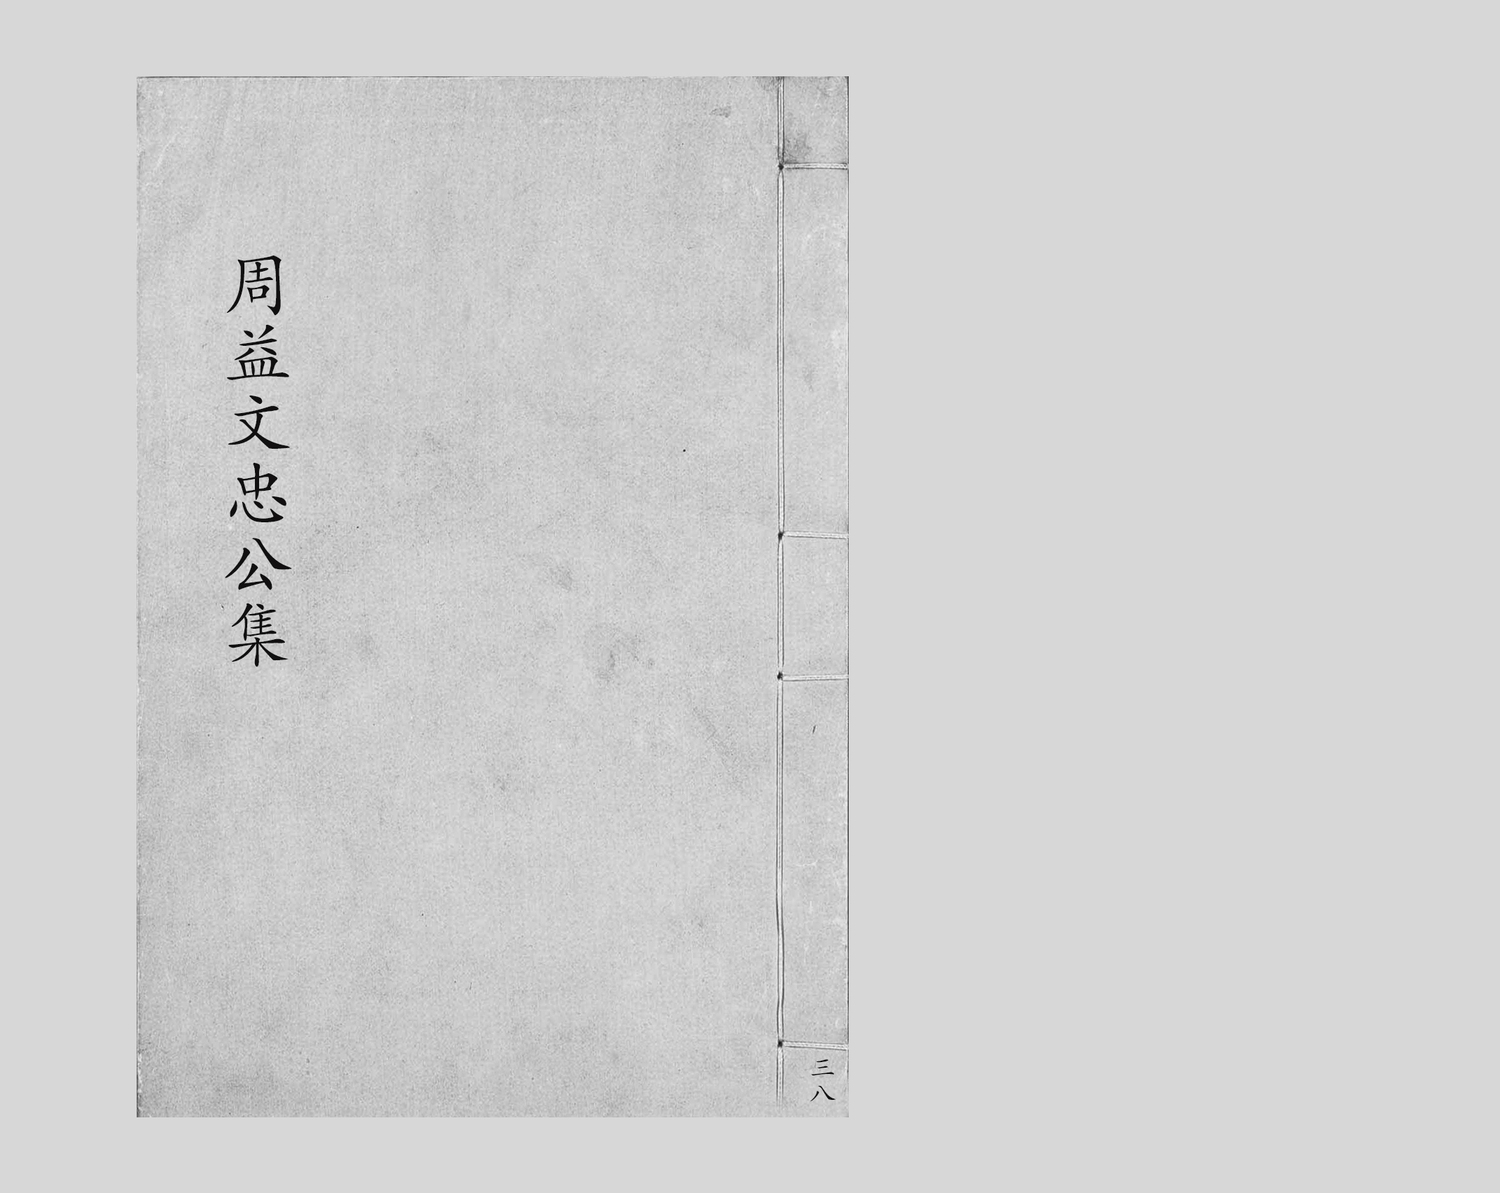 周益文忠公集
三八